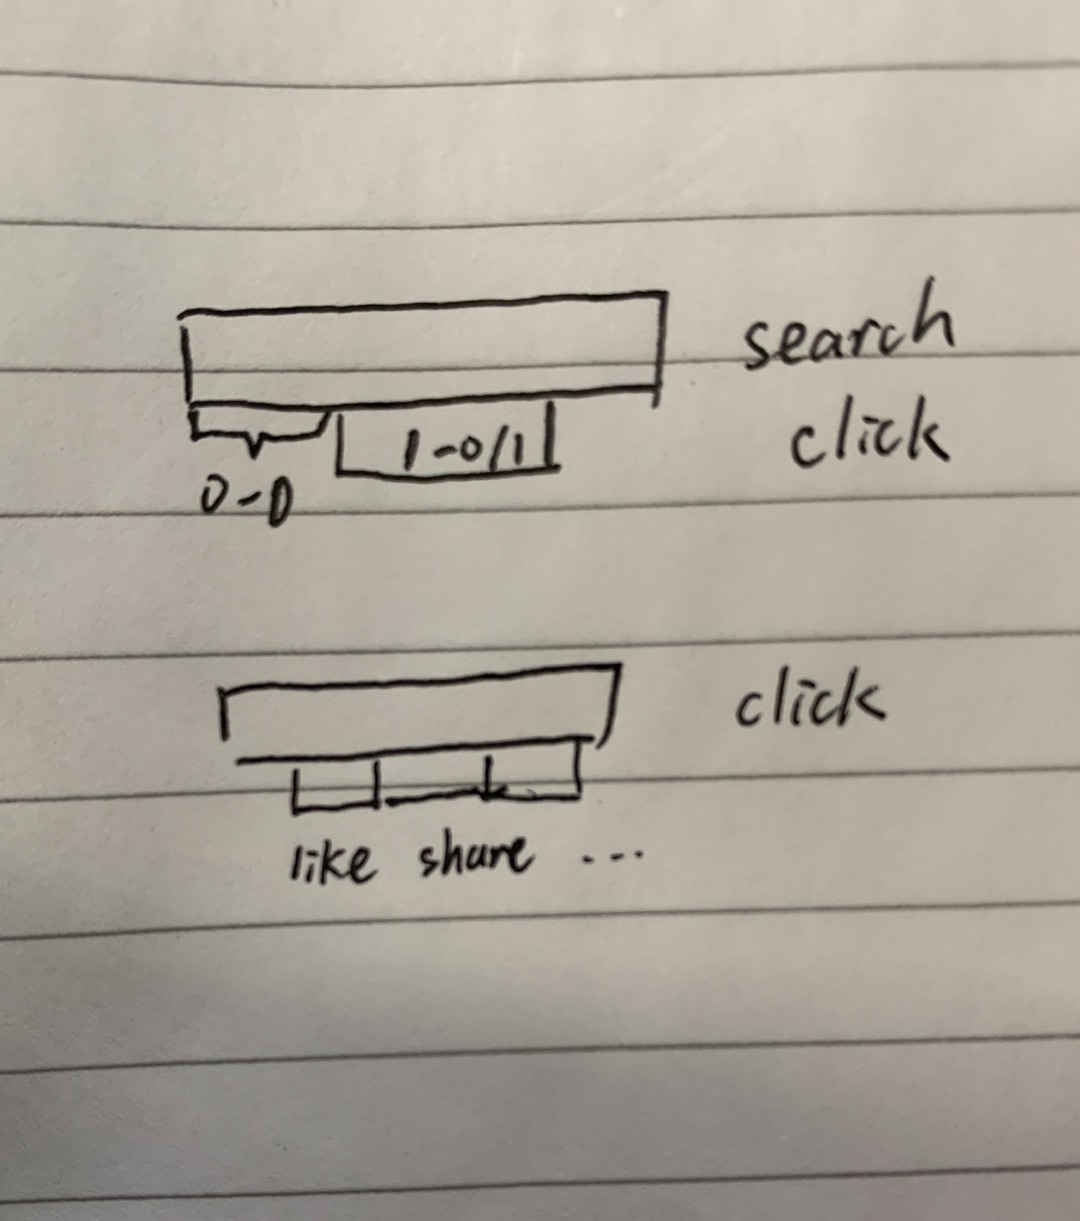 search
click
1-0/1
0-0
click
like share ...